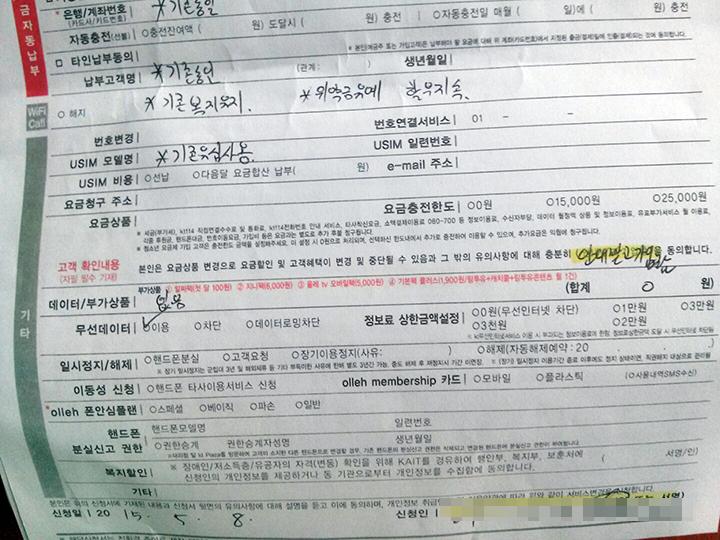 은행/계좌번호 *기존동일
(카드사/카드번호)
자동충전(선불) ○충전잔여액 ( 원) 도달시 ( 원) 충전 ○자동충전일 매월 ( 일)에 ( 원) 충전
금자동납부
□ 타인납부동의
납부고객명 *기존동일 (관계: ) 생년월일
WiFi Call
○ 해지 *기존복지유지. *위약금유예 할부지속.
번호변경 번호연결서비스 01 - -
USIM 모델명 *기존유심사용. USIM 일련번호
USIM 비용 ○선납 ○다음달 요금합산 납부( 원) e-mail 주소
요금청구 주소
요금상품 요금충전한도 ○0원 ○15,000원 ○25,000원
고객 확인내용 본인은 요금상품 변경으로 요금할인 및 고객혜택이 변경 및 중단될 수 있음과 그 밖의 유의사항에 대해 충분히 안내받고 가입을 동의합니다.
(자필 필수 기재)
부가상품 ① 알짜팩(첫 달 100원) ② 지니팩(6,000원) ③ 올레 tv 모바일팩(5,000원) ④ 기본팩 플러스(1,900원/링투유+캐치콜+링투유콘텐츠 월 1건)
데이터/부가상품 없음 (합계 0 원)
무선데이터 ○이용 ○차단 ○데이터로밍차단 정보료 상한금액설정 ○0원(무선인터넷 차단) ○1만원 ○3만원
○3천원 ○2만원
기타
일시정지/해제 ○핸드폰분실 ○고객요청 ○장기이용정지(사유: ) ○해제(자동해제예약 : 20 . . )
이동성 신청 ○핸드폰 타사이용서비스 신청 olleh membership 카드 ○모바일 ○플라스틱 (○사용내역SMS수신)
*olleh 폰안심플랜 ○스페셜 ○베이직 ○파손 ○일반
핸드폰 핸드폰모델명 일련번호
분실신고 권한 ○권한승계 권한승계자성명 생년월일
복지할인 ※ 장애인/저소득층/유공자의 자격(변동) 확인을 위해 KAIT를 경유하여 행안부, 복지부, 보훈처에 ( 서명/인)
신청인의 개인정보를 제공하거나 동 기관으로부터 개인정보를 수집함에 동의합니다.
기타
본인은 위의 신청서에 기재된 내용과 신청서 뒷면의 유의사항에 대해 설명을 듣고 이에 동의하며, 개인정보
신청일 20 15. 5. 8. 신청인